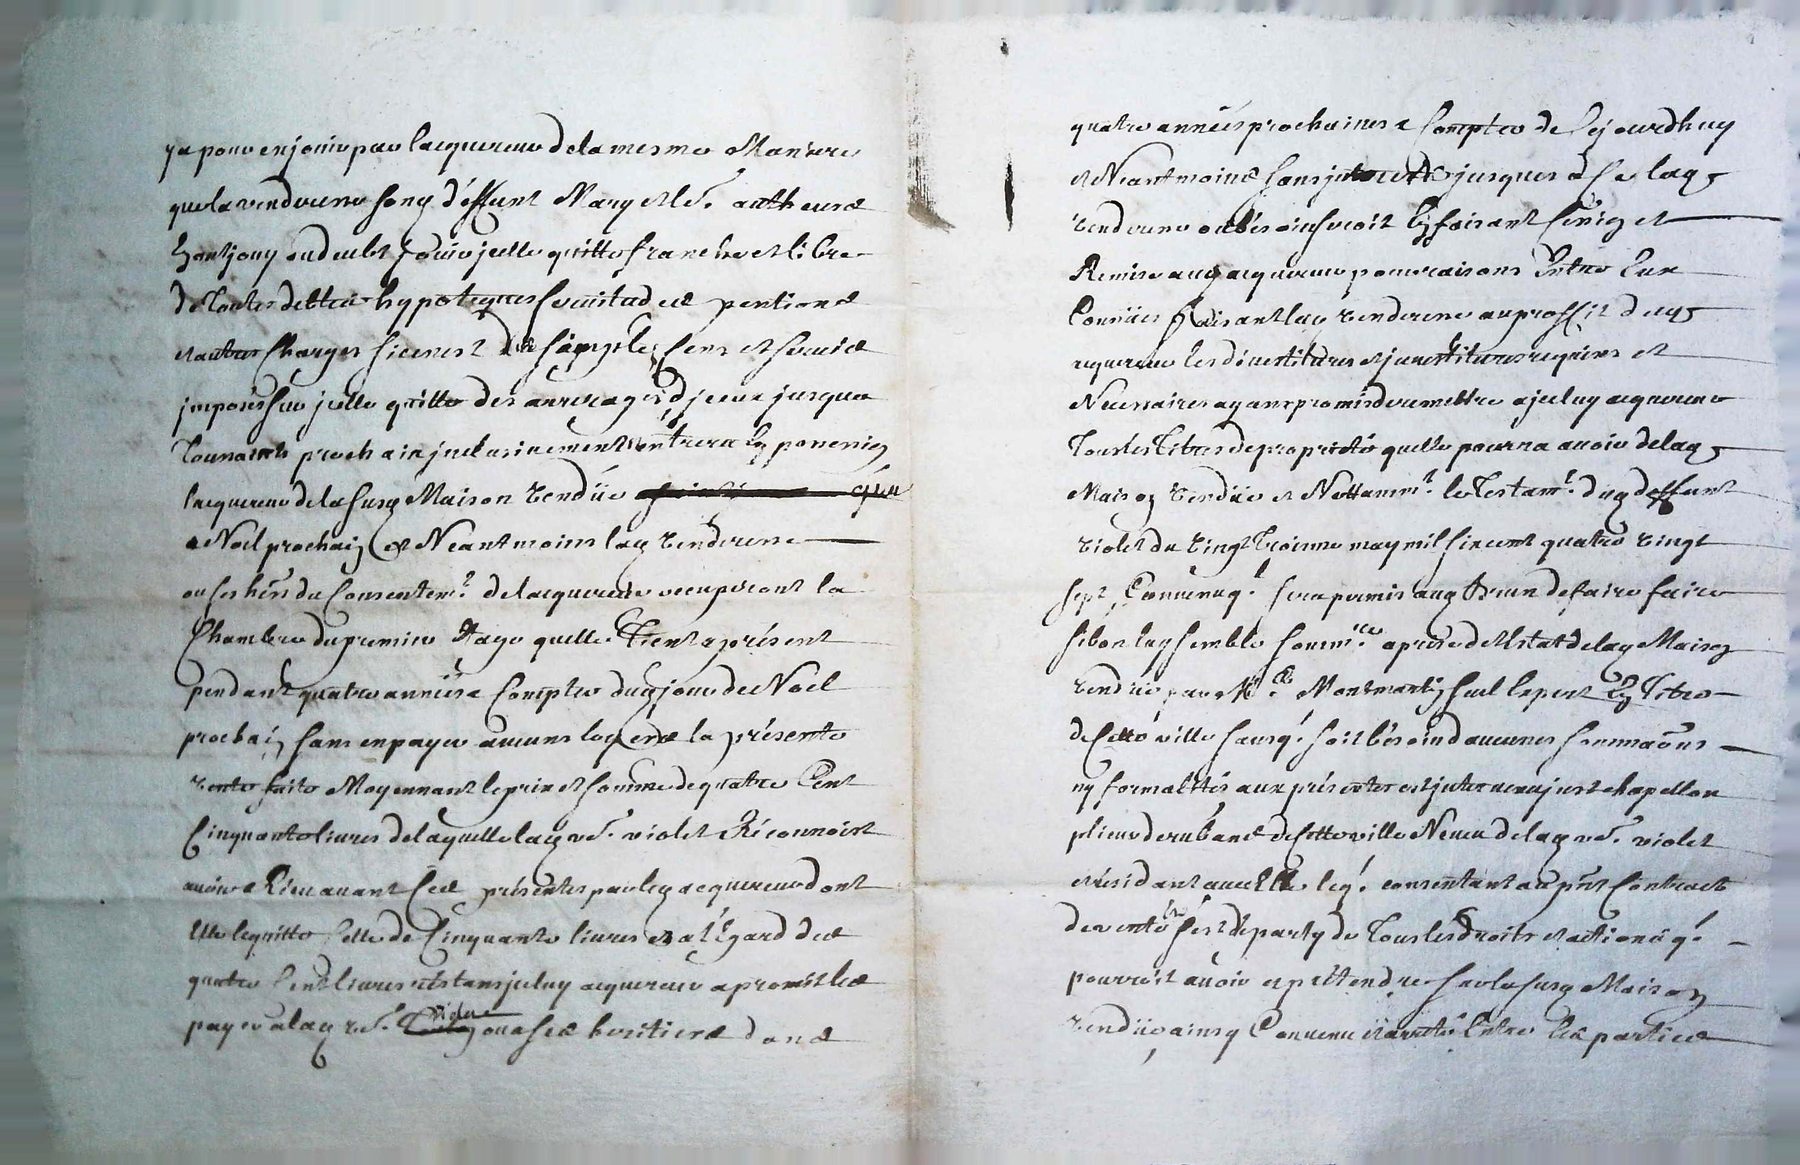 ya pour en jouir par lacquereur de la mesme Maniere
que la venderesse son deffunt Mary et led. autheurs
hont jouy ou deubt jouir jcelle quitte franche et libre
de toutes debtes hypoteques servitudes pentions
et autres Charges si ce nest du simple Cens et servis
jmposes sur jcelle quitte des arrerages d'jceux jusqua
Tounaints prochain jnclusivement entrera en
lacquereur de la susd Maison vendüe
a Noel prochain et Neantmoins lad venderesse
ou ses hers du Consentemt. de lacquereur occuperont la
Chambre du premier Etage quelle Tient a présent
pendant quatre années a Compter dud jour de Noel
prochain sans en payer aucuns loyers la présente
vente faite Moyennant le prix et somme de quatre Cent
Cinquante livres de laquelle lad ve. violet Réconnoist
avoir Rieu avant Ces présentes par led acquereur dont
Elle le quitte Celle de Cinquante livres et a l'Egard des
quatre Cent livres restans jceluy acquereur a promis les
payer a lad ve. ou a ses heritiers dans
quatre années prochaines a Compter de Cejourdhuy
et Neantmoins sans jnterets jusques a Ce lad
venderesse ou bésoin seroit En faisant
Remise aud acquereur pour raisons Entre Eux
Connües faisant lad venderesse au proffit dud
acquereur les dévestitures et jnvestitures requises et
Necessaires ayant promis de remettre a jceluy acquereur
Tous les Titres de propriété quelle pourra avoir de lad
Maison vendüe et Nottammt. le Testamt. dud deffunt
violet du vingt Troisieme may mil sixcent quatre vingt
sept Convenu q. sera permis aud Brun de faire faire
si bon luy semble sommre. aprise de l'Estat de lad Maison
vendüe par Me. Montmartin seul Expert En Titre
de Cette ville sans q. soit bésoin d aucunes sommaons
ny formalités aux présentes est jntervenu just chapellon
plieur de rubans de Cette ville Neveu de lad ve. violet
et résidant avec Elle leq. consentant au pnt Contract
de vente s'est départy de Tous les droits et actions q.
pourroit avoir et prétendre sur la susd Maison
vendüe ainsy Convenu et arreté Entre les parties